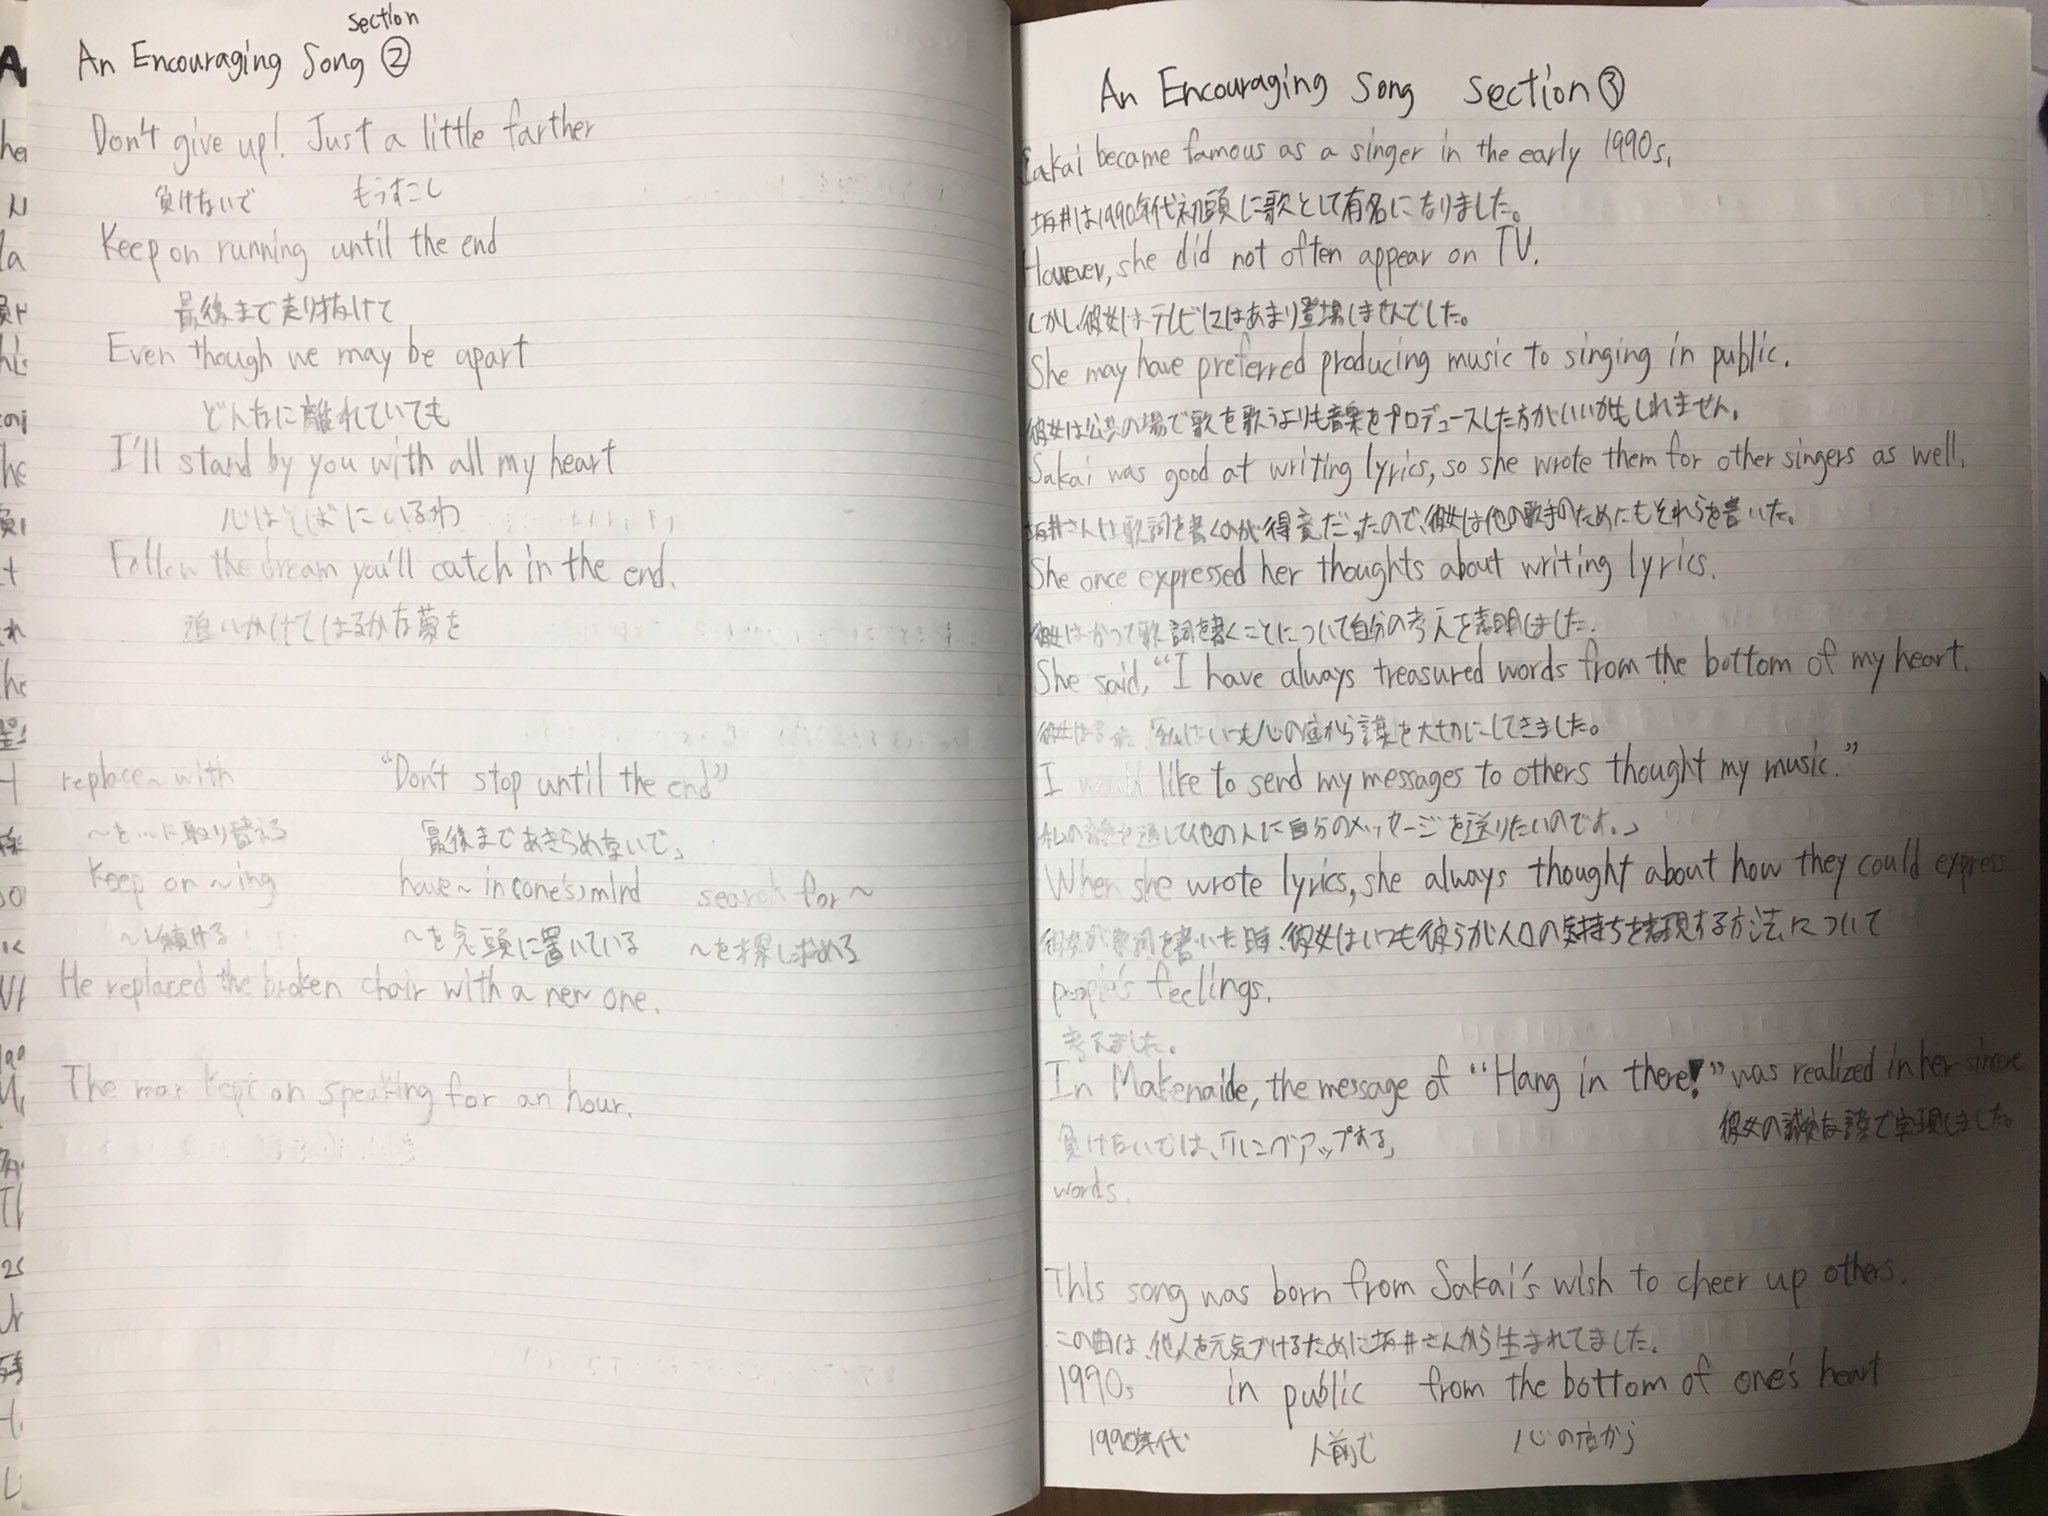 An Encouraging Song section ②
Don't give up! Just a little farther
負けないで もうすこし
Keep on running until the end
最後まで走り抜けて
Even though we may be apart
どんなに離れていても
I'll stand by you with all my heart
心はそばにいるわ
Follow the dream you'll catch in the end.
追いかけてはるかな夢を
replace~with "Don't stop until the end"
~を…に取り替える 最後まであきらめないで」
Keep on ~ing have~in(one's)mind search for~
~し続ける ~を念頭に置いている ~を探し求める
He replaced the broken chair with a new one.
The man kept on speaking for an hour.
An Encouraging Song section③
Sakai became famous as a singer in the early 1990s.
坂井は1990年代初頭に歌として有名になりました。
However, she did not often appear on TV.
しかし、彼女はテレビにはあまり登場しませんでした。
She may have preferred producing music to singing in public.
彼女は公共の場で歌を歌うよりも音楽をプロデュースした方がいいかもしれません。
Sakai was good at writing lyrics, so she wrote them for other singers as well.
坂井さんは歌詞を書くのが得意だったので、彼女は他の歌手のためにもそれらを書いた。
She once expressed her thoughts about writing lyrics.
彼女はかつて歌詞を書くことについて自分の考えを表明しました.
She said, "I have always treasured words from the bottom of my heart.
彼女は 「私はいつも心の底から 葉を大切にしてきました。
I would like to send my messages to others thought my music."
私の音楽を通して他の人に自分のメッセージを送りたいのです。」
When she wrote lyrics, she always thought about how they could express
彼女が歌詞を書いた時、彼女はいつも彼らが人口の気持ちを表現する方法について
people's feelings.
考えました。
In Makenaide, the message of "Hang in there!" was realized in her sincere
負けないでは、「ハングアップする」 彼女の誠実な 葉で実現しました。
words.
This song was born from Sakai's wish to cheer up others.
この曲は、他人を元気づけるために坂井さんから生まれてました.
1990s in public from the bottom of one's heart
1990年代 人前で 心の底から